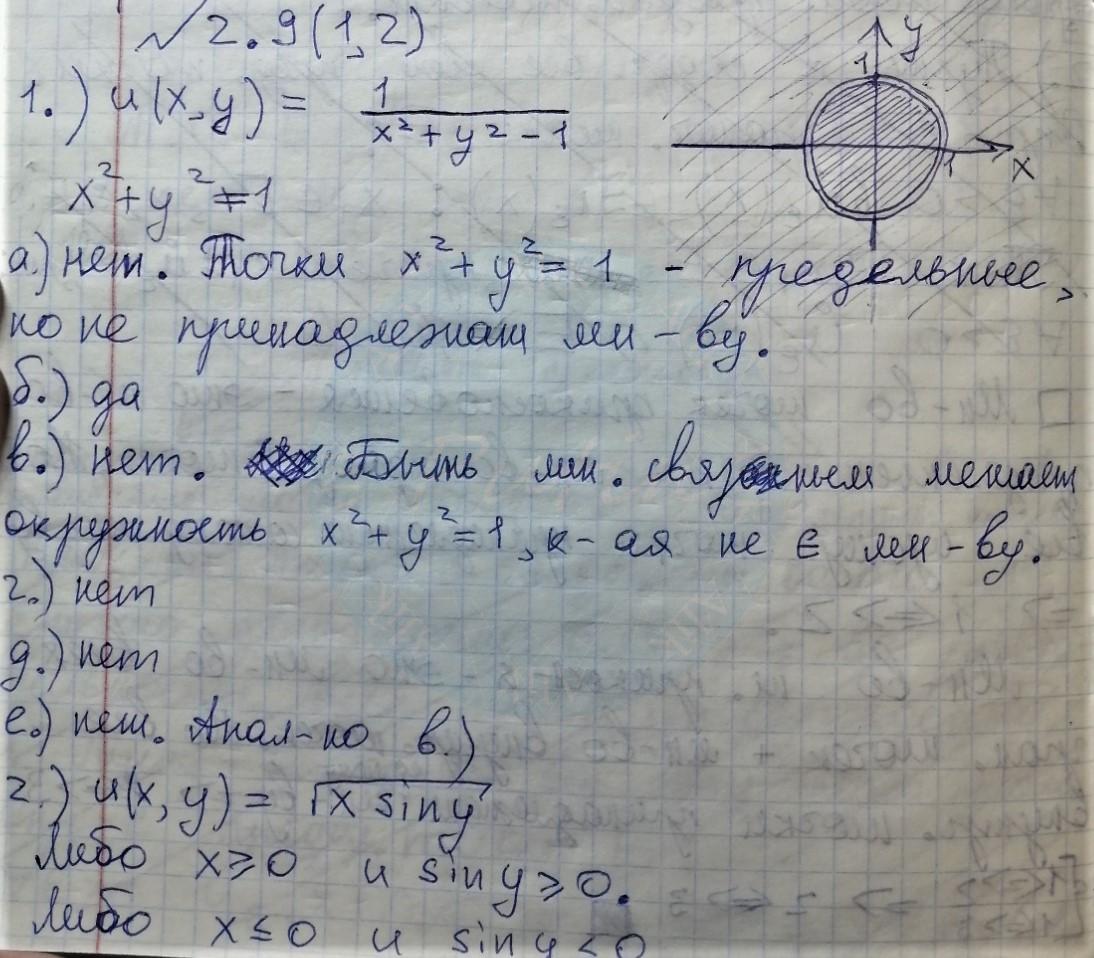 √ 2.9(1,2)
1.) u(x,y) = 1/(x²+y²-1)
y
1
1
x
x²+y²≠1
а.) нет. Точки x²+y²=1 - предельные,
но не принадлежат мн-ву.
б.) да
в.) нет. Быть мн. связным мешает
окружность x²+y²=1, к-ая не ∈ мн-ву.
г.) нет
д.) нет
е.) нет. Анал-но в.)
2.) u(x,y) = √(x sin y)
Либо x≥0 и sin y ≥ 0.
Либо x≤0 и sin y ≤ 0